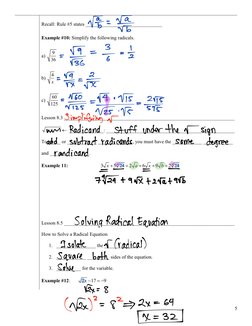 Recall: Rule #5 states √(a/b) = √a/√b
Example #10: Simplify the following radicals.
a) √(9/36) = √9/√36 = 3/6 = 1/2
b) √(4/x) = √4/√x = 2/√x
c) √(60/125) = √60/√125 = √4/√25 · √15/√5 = 2√15/5√5
Lesson 8.3 Simplifying √
Radicand stuff under the √ sign
To add or subtract radicands, you must have the same degree
and randicand
Example 11:
7∜2a + 9√x + 2√a + 9√b
Lesson 8.5 Solving Radical Equation
How to Solve a Radical Equation
1. Isolate the √ (radical)
2. Square both sides of the equation.
3. Solve for the variable.
Example #12 √2x −17 = −9
√2x = 8
(√2x)² = 8² ⇒ 2x = 64
x = 32
5